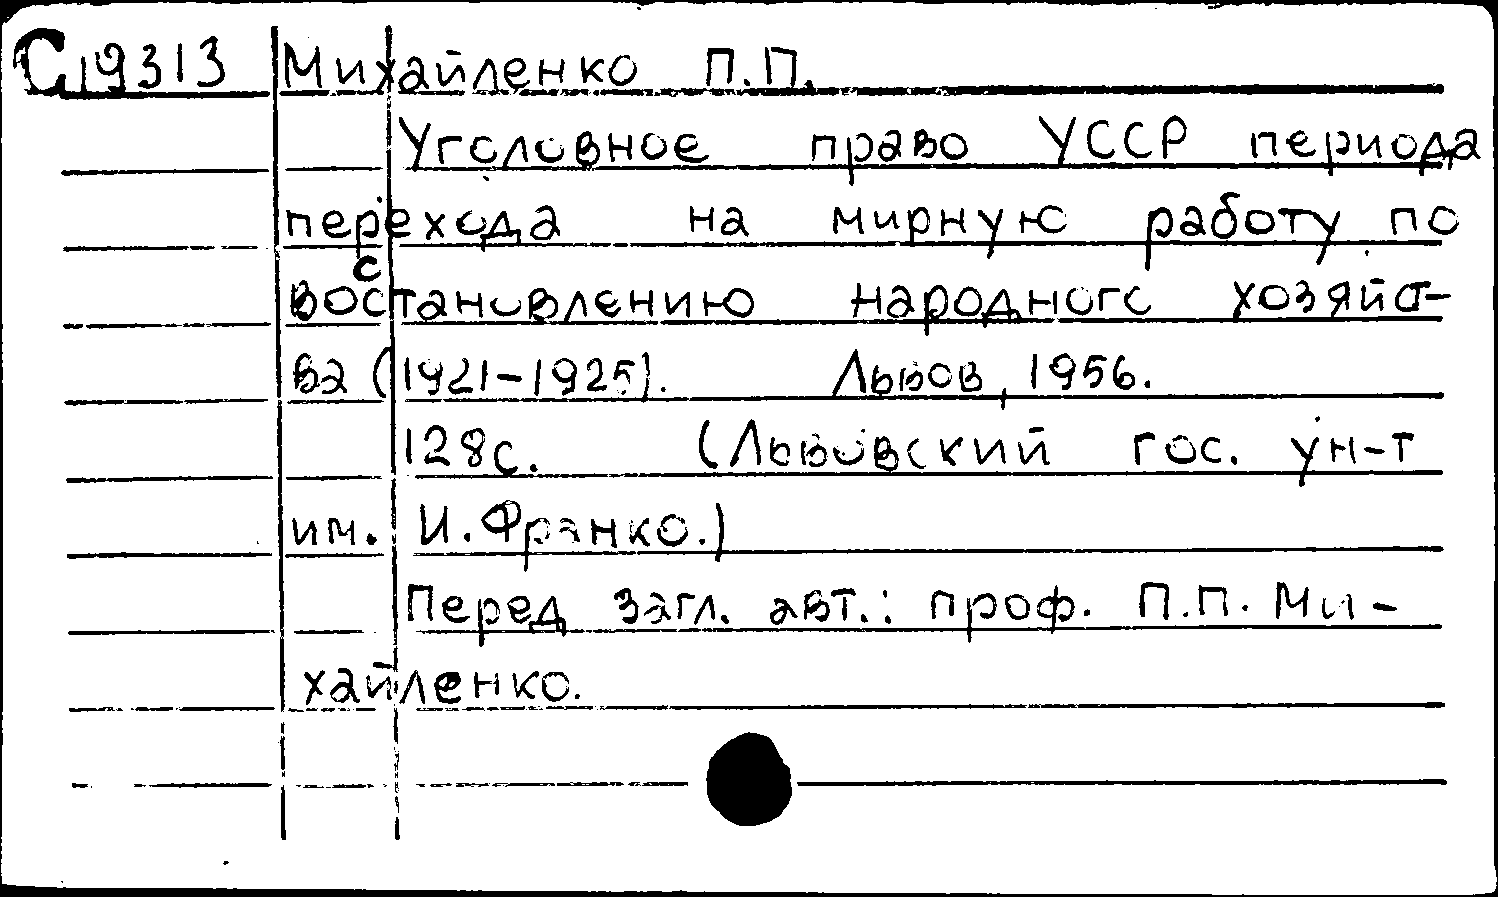 С19313 Михайленко П.П.
Уголовное право УССР периода
перехода на мирную работу по
восстановлению народного хозяйст-
ва (1921-1925). Львов, 1956.
128с. (Львовский гос. ун-т
им. И.Франко.)
Перед загл. авт.: проф. П.П. Ми-
хайленко.